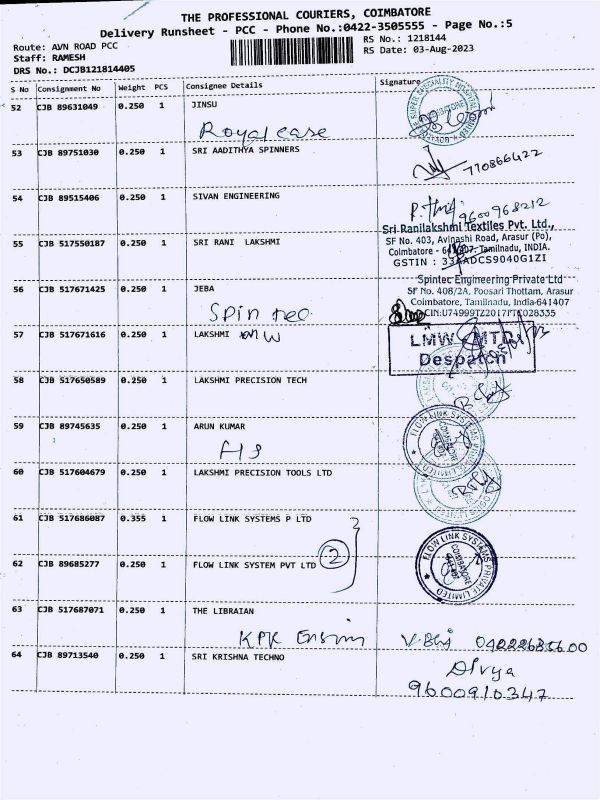 THE PROFESSIONAL COURIERS, COIMBATORE
Delivery Runsheet - PCC - Phone No.:0422-3505555 - Page No.:5
Route: AVN ROAD PCC
RS No.: 1218144
Staff: RAMESH
RS Date: 03-Aug-2023
DRS No.: DCJB121814405
S No Consignment No Weight PCS Consignee Details Signature
52 CJB 89631049 0.250 1 JINSU
Royal care
53 CJB 89751030 0.250 1 SRI AADITHYA SPINNERS
770866422
54 CJB 89515406 0.250 1 SIVAN ENGINEERING
9600968212
Sri Ranilakshmi Textiles Pvt. Ltd.,
SF No. 403, Avinashi Road, Arasur (Po),
55 CJB 517550187 0.250 1 SRI RANI LAKSHMI
Coimbatore - Tamilnadu, INDIA.
GSTIN :
Spintec Engineering Private Ltd
56 CJB 517671425 0.250 1 JEBA
SF No. 408/2A, Poosari Thottam, Arasur
Coimbatore, Tamilnadu, India-641407
Spin tec
CIN:U74999TZ2017PTC028335
57 CJB 517671616 0.250 1 LAKSHMI MW
LMW - MTD
Despatch
58 CJB 517650589 0.250 1 LAKSHMI PRECISION TECH
59 CJB 89745635 0.250 1 ARUN KUMAR
FLOW LINK SYSTEMS PRIVATE LIMITED
60 CJB 517604679 0.250 1 LAKSHMI PRECISION TOOLS LTD
61 CJB 517686087 0.355 1 FLOW LINK SYSTEMS P LTD
2
FLOW LINK SYSTEMS PRIVATE LIMITED
COIMBATORE
62 CJB 89685277 0.250 1 FLOW LINK SYSTEM PVT LTD
63 CJB 517687071 0.250 1 THE LIBRAIAN
KPR
64 CJB 89713540 0.250 1 SRI KRISHNA TECHNO
Divya
9600910347